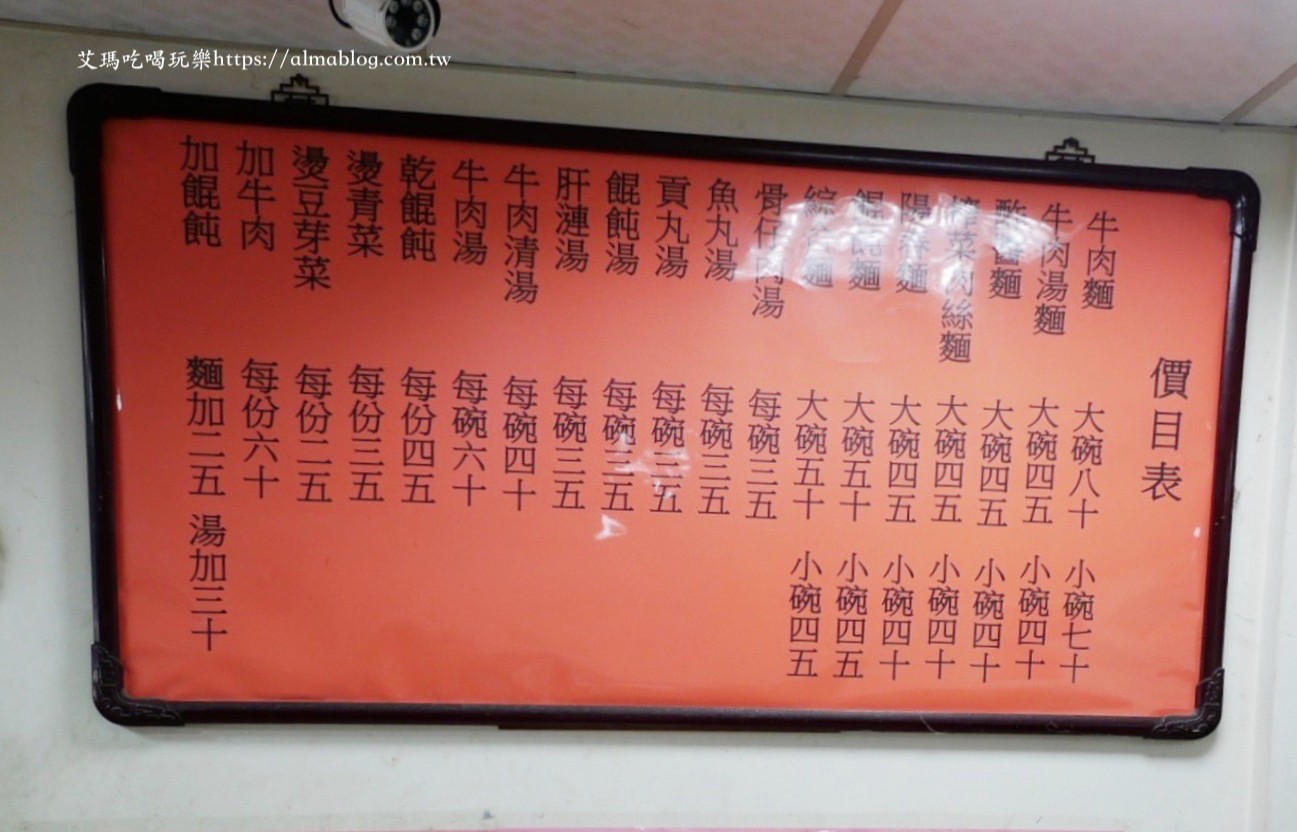 艾瑪吃喝玩樂https://almablog.com.tw
價目表
牛肉麵 大碗八十 小碗七十
牛肉湯麵 大碗四五 小碗四十
酢醬麵 大碗四五 小碗四十
榨菜肉絲麵 大碗四五 小碗四十
陽春麵 大碗四五 小碗四十
餛飩麵 大碗五十 小碗四五
綜合麵 大碗五十 小碗四五
骨仔肉湯 每碗三五
魚丸湯 每碗三五
貢丸湯 每碗三五
餛飩湯 每碗三五
肝漣湯 每碗三五
牛肉清湯 每碗四十
牛肉湯 每碗六十
乾餛飩 每份四五
燙青菜 每份三五
燙豆芽菜 每份二五
加牛肉 每份六十
加餛飩 麵加二五 湯加三十